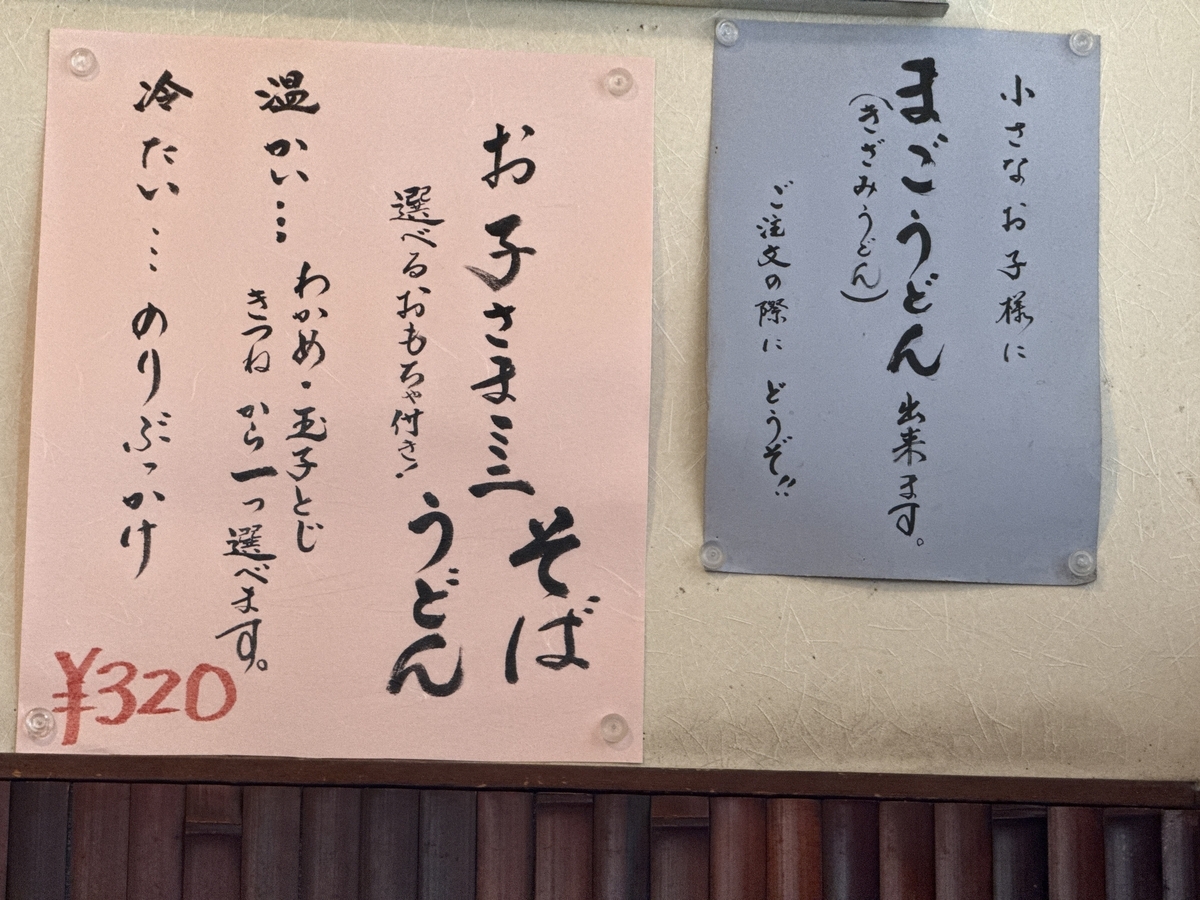 小さなお子様に
まごうどん出来ます。
(きざみうどん)
ご注文の際に どうぞ!!
お子さまミニ
そば
うどん
選べるおもちゃ付き!
温かい…
わかめ・玉子とじ
きつね から一つ選べます。
冷たい…のりぶっかけ
¥320